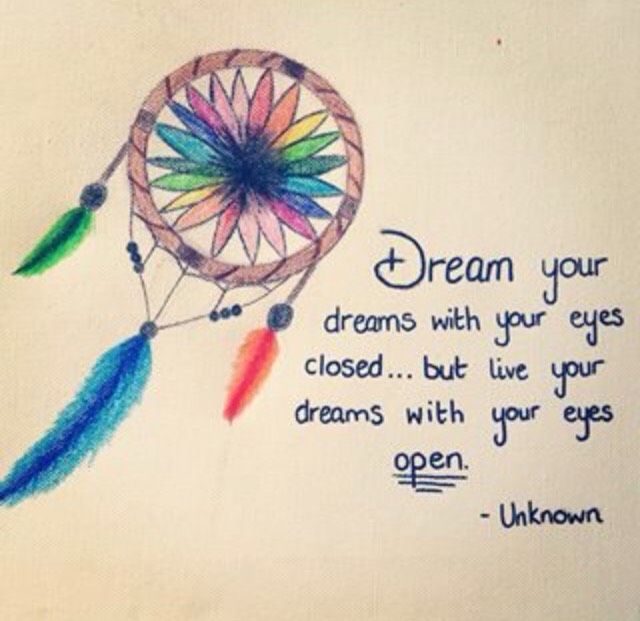 Dream your
dreams with your eyes
closed... but live your
dreams with your eyes
open.
- Unknown